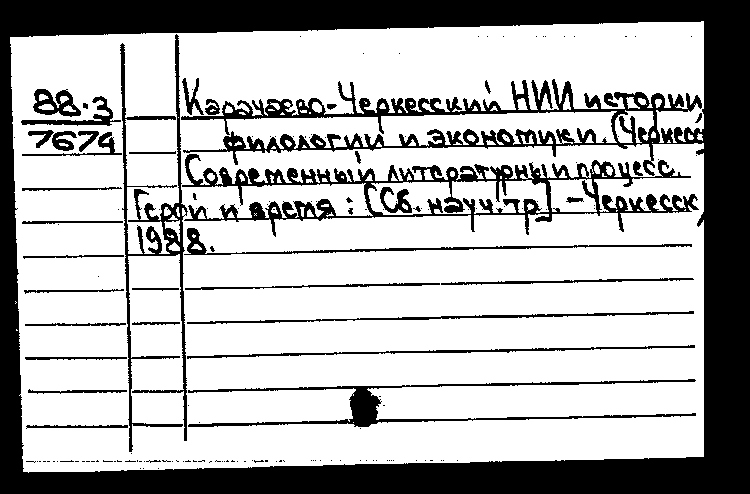 88-3
7674
Карачаево-Черкесский НИИ истории,
филологии и экономики. (Черкесс
Современный литературный процесс.
Герой и время: [Сб. науч. тр]. - Черкесск,
1988.